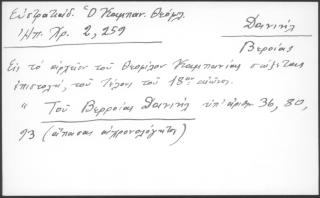 Εὐστρατιάδ. Ὁ Καμπαν. Θεόφιλ.
Ἠπ. Χρ. 2, 259
Δανιὴλ
Βεροίας
Εἰς τὸ ἀρχεῖον τοῦ Θεοφίλου Καμπανίας σώζεται
ἐπιστολή, τοῦ τέλους τοῦ 18ου αἰῶνος.
" Τοῦ Βερροίας Δανιὴλ ὑπ' ἀριθμ. 36, 80,
93 (ἅπασαι ἀχρονολόγητοι)